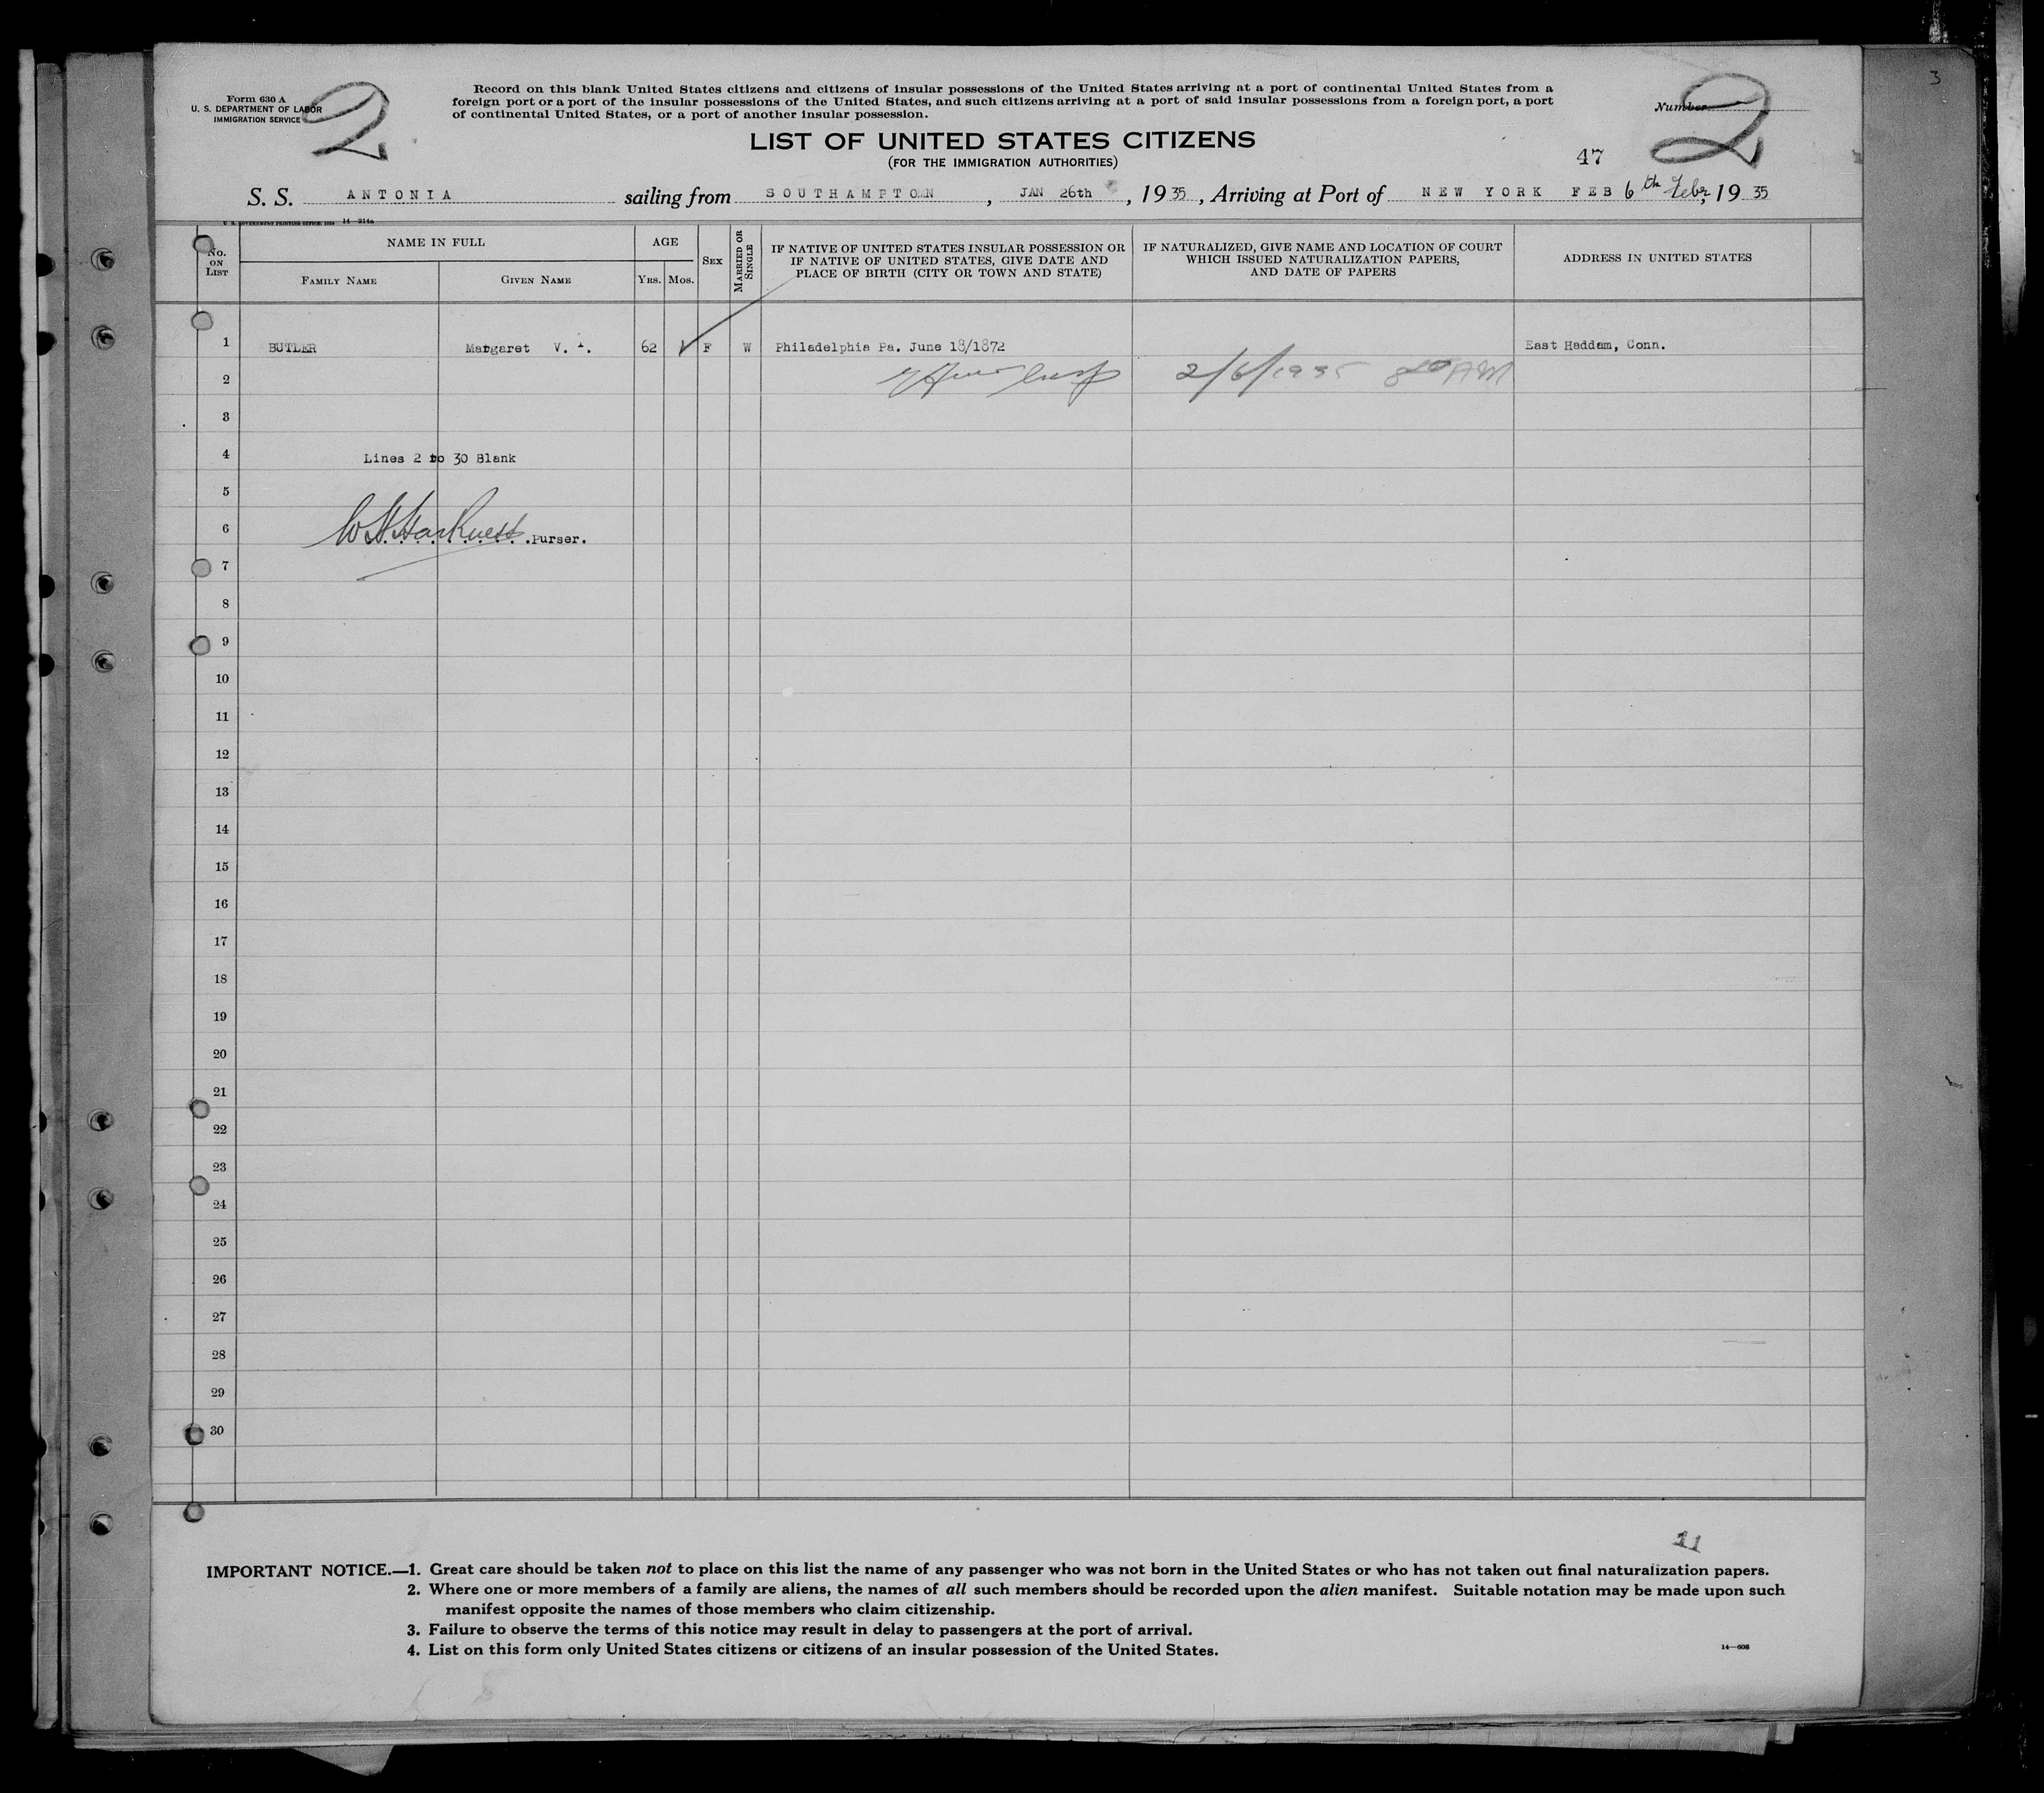 3
Form 630 A
U. S. DEPARTMENT OF LABOR
IMMIGRATION SERVICE
2
Record on this blank United States citizens and citizens of insular possessions of the United States arriving at a port of continental United States from a
foreign port or a port of the insular possessions of the United States, and such citizens arriving at a port of said insular possessions from a foreign port, a port
of continental United States, or a port of another insular possession.
Number
2
LIST OF UNITED STATES CITIZENS
(FOR THE IMMIGRATION AUTHORITIES)
47
S. S. ANTONIA sailing from SOUTHAMPTON , JAN 26th , 19 35 , Arriving at Port of NEW YORK FEB 6th Feby, 19 35
U. S. GOVERNMENT PRINTING OFFICE 14—314a
No. ON LIST
NAME IN FULL
FAMILY NAME
GIVEN NAME
AGE
YRS. MOS.
SEX
MARRIED OR SINGLE
IF NATIVE OF UNITED STATES INSULAR POSSESSION OR
IF NATIVE OF UNITED STATES, GIVE DATE AND
PLACE OF BIRTH (CITY OR TOWN AND STATE)
IF NATURALIZED, GIVE NAME AND LOCATION OF COURT
WHICH ISSUED NATURALIZATION PAPERS,
AND DATE OF PAPERS
ADDRESS IN UNITED STATES
1 BUTLER Margaret V. 62 F W Philadelphia Pa. June 18/1872 East Haddam, Conn.
2 2/6/1935 AM
3
4 Lines 2 to 30 Blank
5
6 W H Harkness Purser.
7
8
9
10
11
12
13
14
15
16
17
18
19
20
21
22
23
24
25
26
27
28
29
30
11
IMPORTANT NOTICE.—1. Great care should be taken not to place on this list the name of any passenger who was not born in the United States or who has not taken out final naturalization papers.
2. Where one or more members of a family are aliens, the names of all such members should be recorded upon the alien manifest. Suitable notation may be made upon such
manifest opposite the names of those members who claim citizenship.
3. Failure to observe the terms of this notice may result in delay to passengers at the port of arrival.
4. List on this form only United States citizens or citizens of an insular possession of the United States.
14—608